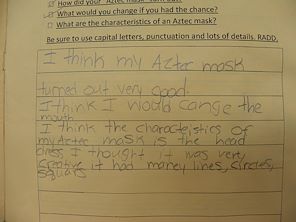 How did your "Aztec mask" turn out?
What would you change if you had the chance?
What are the characteristics of an Aztec mask?
Be sure to use capital letters, punctuation and lots of details. RADD,
I think my Aztec mask
turned out very good.
I think I would cange the
mouth
I think the characteistics of
my Aztec mask is the head
dress I thought it was very
creative it had maney lines, circues,
squars